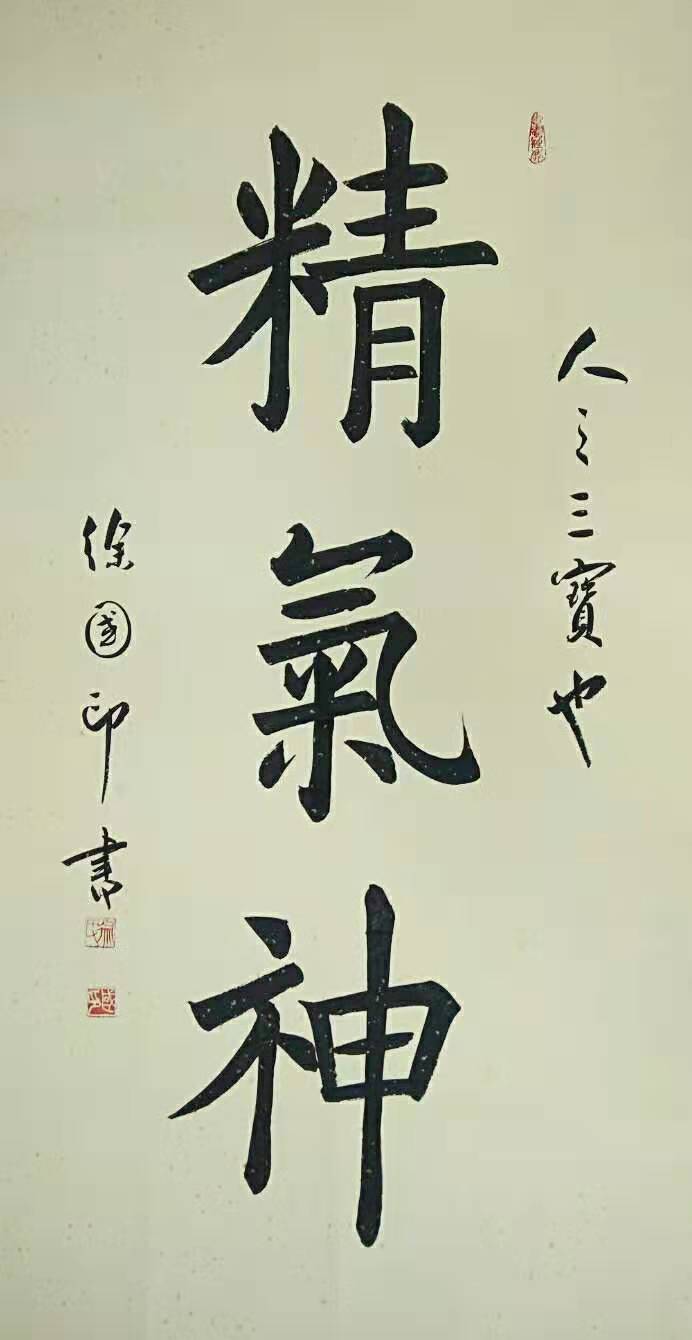 人之三寶也
精氣神
徐國印書